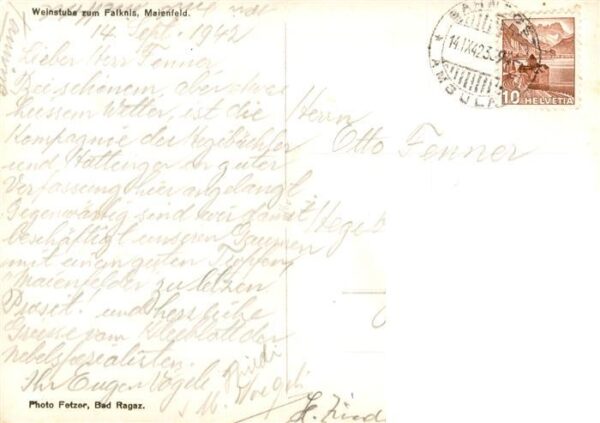 Weinstube zum Falknis, Maienfeld.
14. Sept. 1942
Lieber Herr Fenner
Bei schönem, aber etwas
heissem Wetter, ist die
Kompagnie der Hegibächler
und Hottinger in guter
Verfassung hier angelangt.
Gegenwärtig sind wir damit
beschäftigt unseren Gaumen
mit einem guten Tropfen
Maienfelder zu letzen
Prosit! und herzliche
Grüsse vom Kleeblatt der
Nebelspezialisten.
Ihr Eugen Vögeli
Ruedi
Photo Fetzer, Bad Ragaz.
Herrn
Otto Fenner
Hegib
AMBULANT
14.IX.42
10 HELVETIA